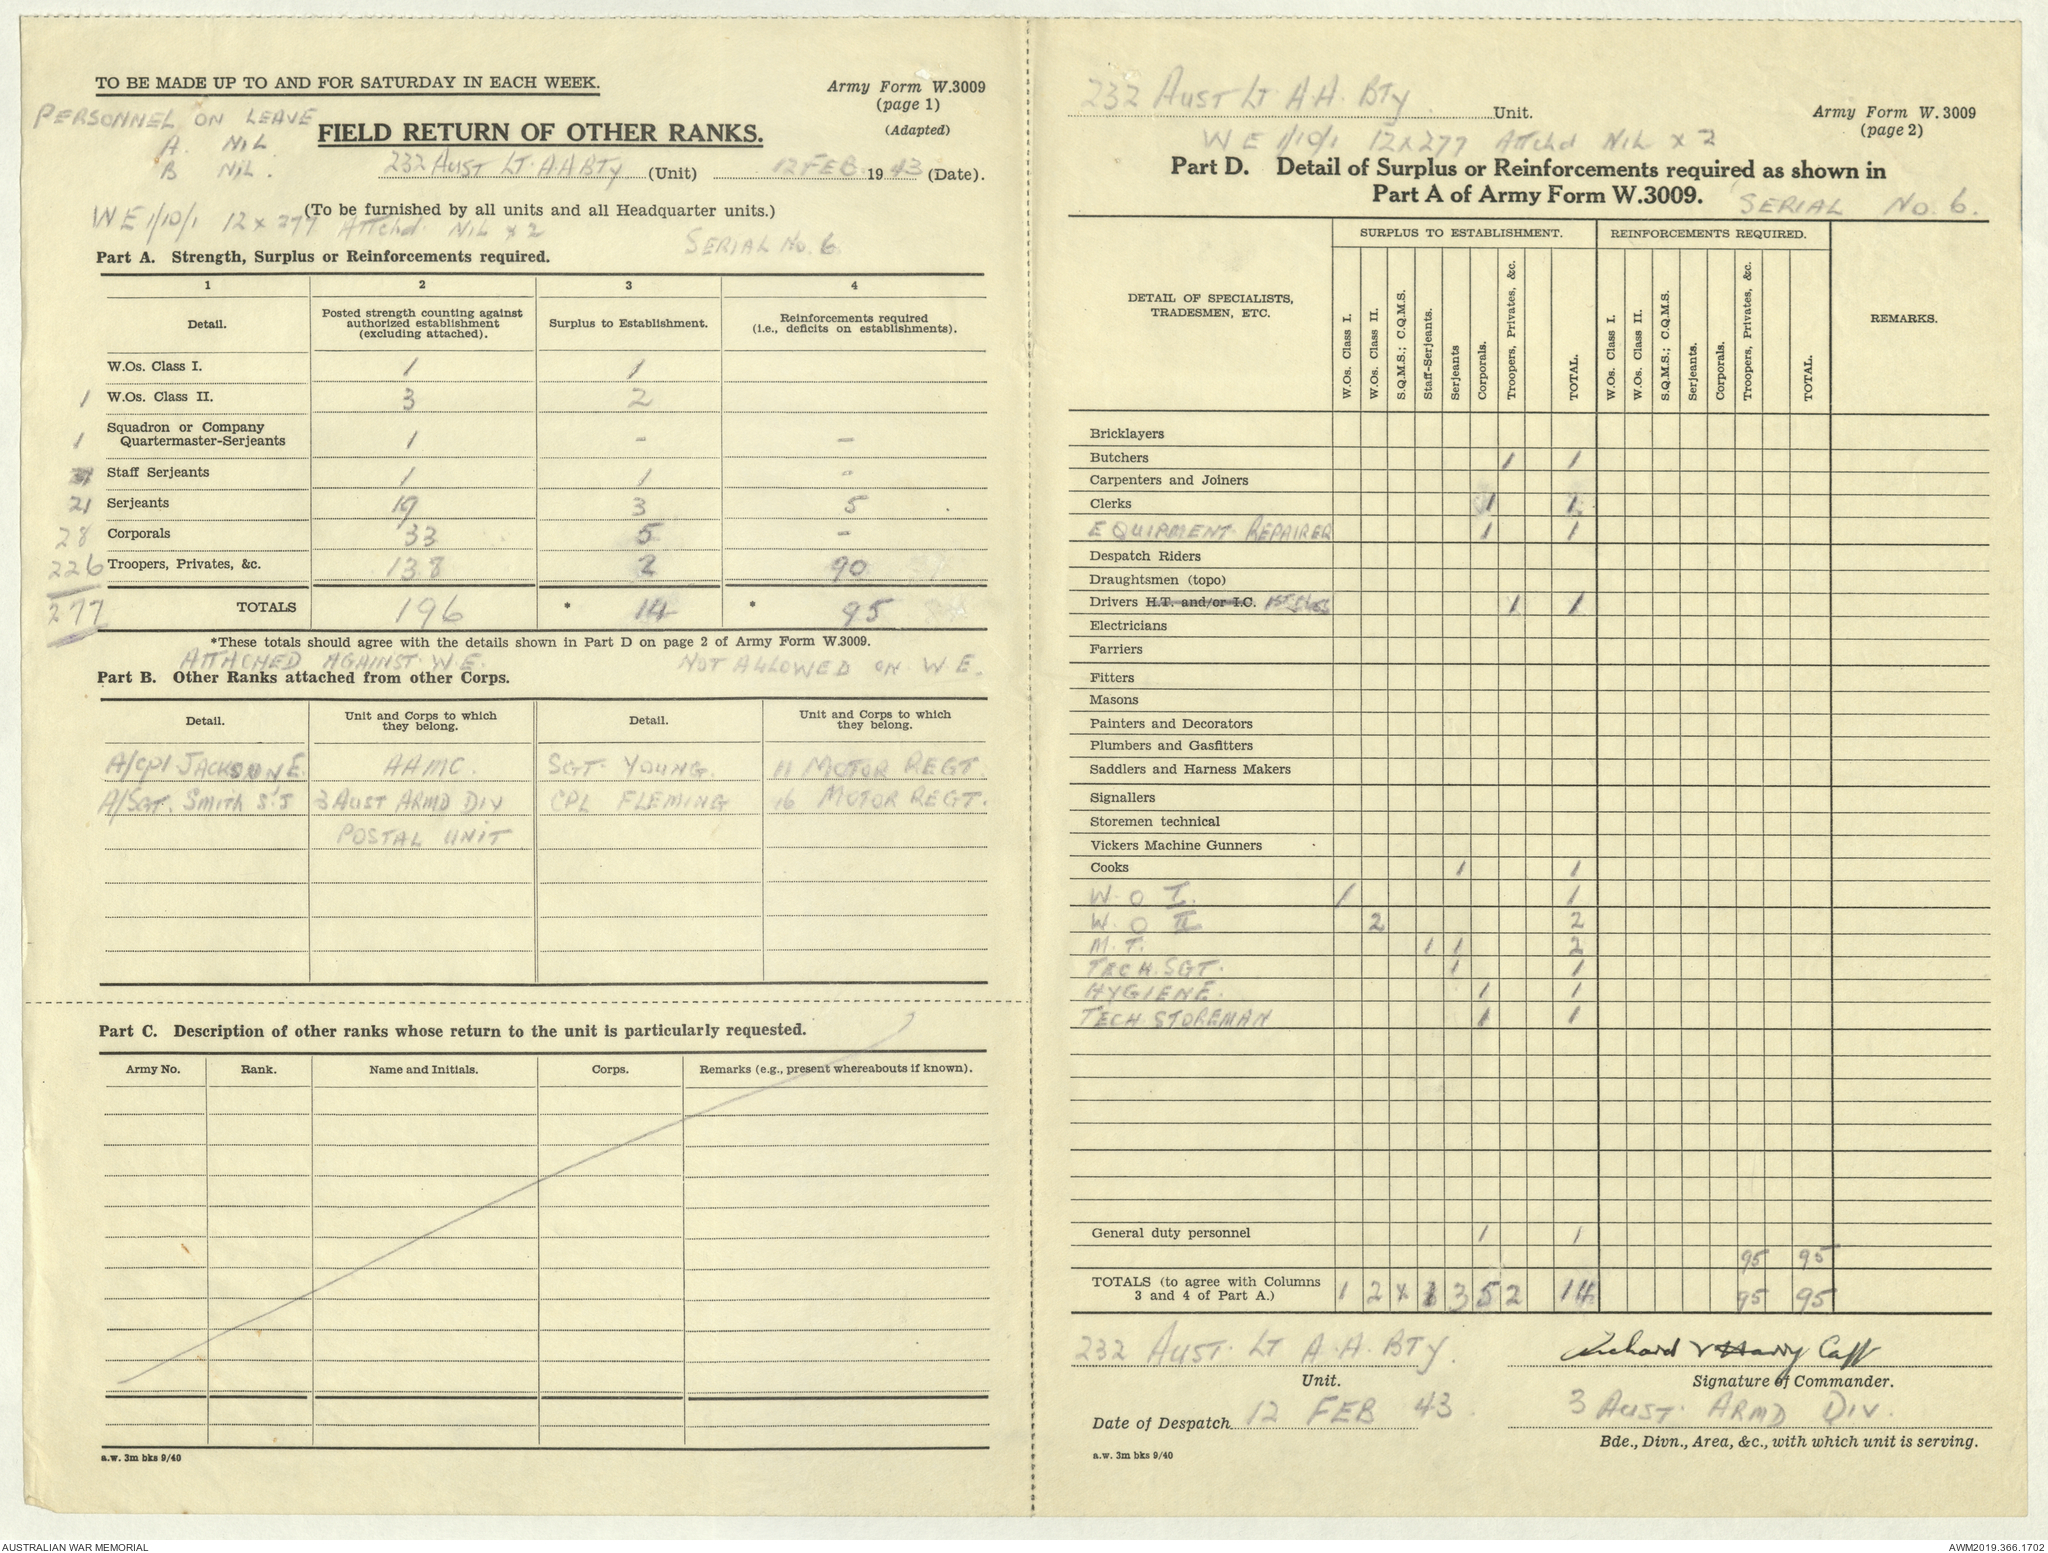 TO BE MADE UP TO AND FOR SATURDAY IN EACH WEEK.
Army Form W.3009
(page 1)
(Adapted)
PERSONNEL ON LEAVE
A. NIL
B NIL.
FIELD RETURN OF OTHER RANKS.
232 AUST LT. A.A BTY (Unit) 12 FEB 1943 (Date).
(To be furnished by all units and all Headquarter units.)
WE 1/10/1 12 x 277 Attchd. NIL x 2
SERIAL No. 6
Part A. Strength, Surplus or Reinforcements required.
1 2 3 4
Detail. Posted strength counting against authorized establishment (excluding attached). Surplus to Establishment. Reinforcements required (i.e., deficits on establishments).
W.Os. Class I. 1 1
1 W.Os. Class II. 3 2
1 Squadron or Company Quartermaster-Serjeants 1 - -
Staff Serjeants 1 1 -
21 Serjeants 19 3 5
28 Corporals 33 5 -
226 Troopers, Privates, &c. 138 2 90
277 TOTALS 196 * 14 * 95
*These totals should agree with the details shown in Part D on page 2 of Army Form W.3009.
ATTACHED AGAINST W.E. NOT ALLOWED ON W.E.
Part B. Other Ranks attached from other Corps.
Detail. Unit and Corps to which they belong. Detail. Unit and Corps to which they belong.
A/Cpl JACKSON E. AAMC. SGT. YOUNG. 11 MOTOR REGT.
A/SGT. SMITH S.J 3 AUST ARMD DIV CPL FLEMING 16 MOTOR REGT.
POSTAL UNIT
Part C. Description of other ranks whose return to the unit is particularly requested.
Army No. Rank. Name and Initials. Corps. Remarks (e.g., present whereabouts if known).
a.w. 3m bks 9/40
232 AUST LT A.A. BTY Unit.
Army Form W.3009
(page 2)
WE 1/10/1 12 x 277 Attchd NIL x 2
Part D. Detail of Surplus or Reinforcements required as shown in
Part A of Army Form W.3009.
SERIAL No. 6.
DETAIL OF SPECIALISTS, TRADESMEN, ETC.
SURPLUS TO ESTABLISHMENT. REINFORCEMENTS REQUIRED. REMARKS.
W.Os. Class I. W.Os. Class II. S.Q.M.S.; C.Q.M.S. Staff-Serjeants. Serjeants Corporals. Troopers, Privates, &c. TOTAL.
W.Os. Class I. W.Os. Class II. S.Q.M.S.; C.Q.M.S. Serjeants. Corporals. Troopers, Privates, &c. TOTAL.
Bricklayers
Butchers 1 1
Carpenters and Joiners
Clerks 1 1
EQUIPMENT REPAIRER 1 1
Despatch Riders
Draughtsmen (topo)
Drivers H.T. and/or I.C. 1 1
Electricians
Farriers
Fitters
Masons
Painters and Decorators
Plumbers and Gasfitters
Saddlers and Harness Makers
Signallers
Storemen technical
Vickers Machine Gunners
Cooks 1 1
W.O I. 1 1
W.O II 2 2
M.T. 1 1 2
TECH.SGT. 1 1
HYGIENE. 1 1
TECH STOREMAN 1 1
General duty personnel 1 1
95 95
TOTALS (to agree with Columns 3 and 4 of Part A.) 1 2 x 1 3 5 2 14 95 95
232 AUST. LT A.A. BTY.
Unit.
Signature of Commander.
Date of Despatch 12 FEB 43
3 AUST. ARMD DIV.
Bde., Divn., Area, &c., with which unit is serving.
a.w. 3m bks 9/40
AUSTRALIAN WAR MEMORIAL
AWM2019.366.1702